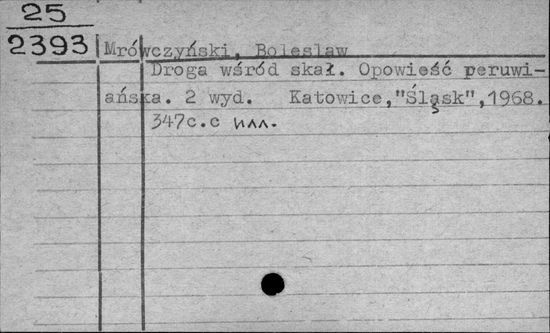 25
2393
Mrówczyński, Bolesław
Droga wśród skał. Opowieść peruwi-
ańska. 2 wyd. Katowice,"Śląsk",1968.
347с.с илл.